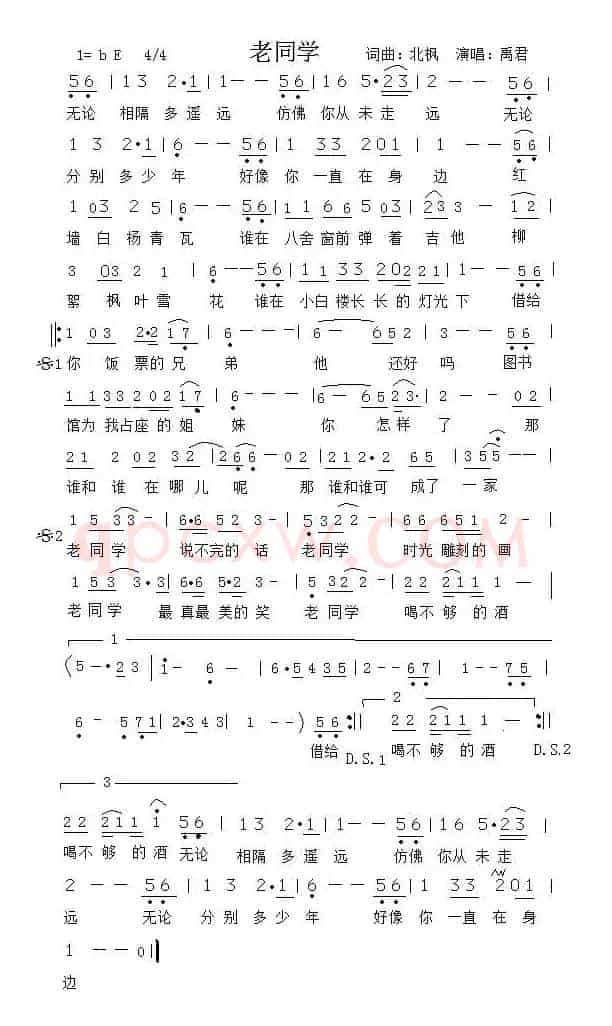 1= b E 4/4 老同学 词曲：北枫 演唱：禹君
5 6 | 1 3 2·1 | 1 – – 5 6 | 1 6 5·2 3 | 2 – – 5 6 |
无论 相隔 多 遥 远 仿佛 你从 未 走 远 无论
1 3 2·1 | 6 – – 5 6 | 1 3 3 2 0 1 | 1 – – 5 6 |
分 别 多 少 年 好像 你 一 直 在 身 边 红
1 0 3 2 5 | 6 – – 5 6 | 1 1 6 6 5 0 1 | 2 3 3 – 1 2 |
墙 白 杨 青 瓦 谁在 八舍 窗前 弹 着 吉 他 柳
3 0 3 2 1 | 6 – – 5 6 | 1 1 3 3 2 0 2 2 1 | 1 – – 5 6 |
絮 枫 叶 雪 花 谁在 小白 楼长 长 的 灯光 下 借给
1 0 3 2·2 1 7 | 6 – – – | 6 – 6 5 2 | 3 – – 5 6 |
𝄋1 你 饭 票的兄 弟 他 还好 吗 图书
1 1 3 3 2 0 2 1 | 6 – – – | 6 – 6 5 2 3· | 2 – – 0 2 |
馆为 我占座 的 姐 妹 你 怎样 了 那
2 1 2 0 2 3 2 | 2 6 6 – 0 2 | 2 1 2·2 6 5 | 3 5 5 – – |
谁和 谁 在 哪 儿 呢 那 谁和谁可 成了 一 家
1 5 3 3 – | 6·6 5·2 3 – | 5 3 2 2 – | 6 6 6 5 1 |
𝄋2 老 同 学 说不完的 话 老同学 时光 雕刻的 画
1 5 3 3·3 | 6·6 5·2 3 – | 5 3 2 2 – | 2 2 2 1 1 – |
老 同 学 最 真最 美的 笑 老 同学 喝不 够 的 酒
1
(5 – ·2 3 | 1 – 6 – | 6·5 4 3 5 | 2 – – 6 7 | 1 – – 7 5 |
6 – 5 7 1 | 2·3 4 3 | 1 – – ) 5 6 :|| 2 2 2 1 1 1 – :||
2
借给 D.S.1 喝不 够 的 酒 D.S.2
3
2 2 2 1 1 1 5 6 | 1 3 2·1 | 1 – – 5 6 | 1 6 5·2 3 |
喝不 够 的 酒 无论 相隔 多 遥 远 仿佛 你从 未 走
2 – – 5 6 | 1 3 2·1 | 6 – – 5 6 | 1 3 3 2 0 1 |
远 无论 分 别 多 少 年 好像 你 一直 在 身
1 – – 0 ||
边
gpcxw.COM